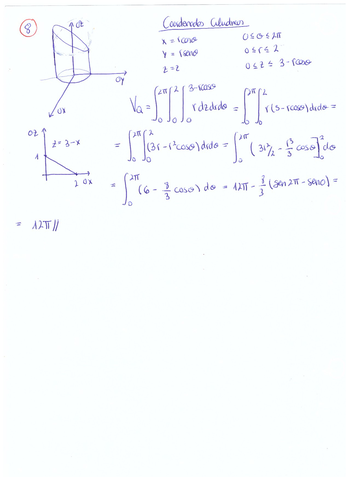 8
Coordenadas Cilíndricas
x = rcosθ 0 ≤ θ ≤ 2π
y = rsenθ 0 ≤ r ≤ 2
z = z 0 ≤ z ≤ 3 - rcosθ
OZ
OY
OX
V_Q = ∫₀^2π ∫₀^2 ∫₀^3-rcosθ r dz dr dθ = ∫₀^2π ∫₀^2 r(3-rcosθ) dr dθ =
OZ
z = 3 - x
1
2 OX
= ∫₀^2π ∫₀^2 (3r - r²cosθ) dr dθ = ∫₀^2π (3r²/2 - r³/3 cosθ]₀^2 dθ
= ∫₀^2π (6 - 8/3 cosθ) dθ = 12π - 8/3 (sen2π - sen0) =
= 12π //